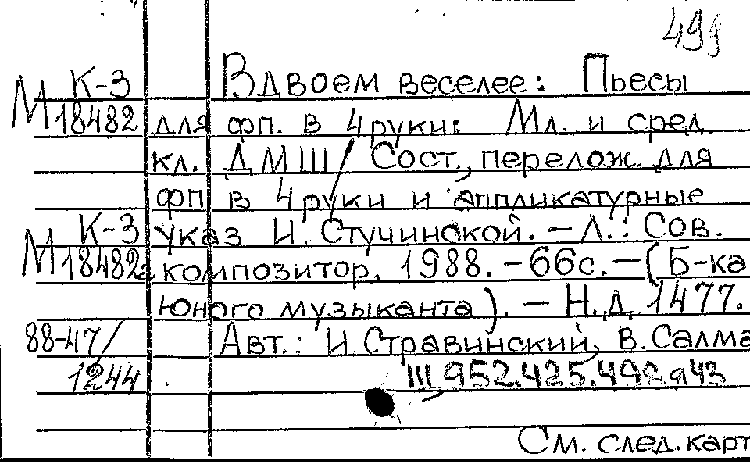 499
К-3 Вдвоем веселее: Пьесы
М 18482 для фп. в 4 руки: Мл. и сред.
кл. ДМШ / Сост., перелож. для
фп. в 4 руки и аппликатурные
К-3 указ. И. Стучинской. – Л.: Сов.
М 18482а композитор, 1988. – 66с. – (Б-ка
юного музыканта). – Н.д. 1477.
88-47/ Авт.: И. Стравинский, В. Салма
1244 Ш 952.425.498я43
См. след. карт